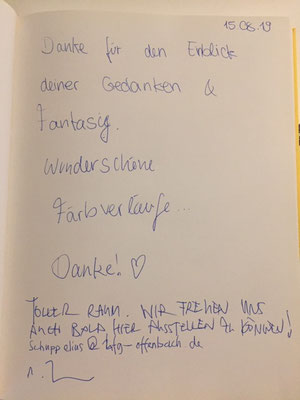 15.08.19
Danke für den Einblick
deiner Gedanken &
Fantasie.
Wunderschöne
Farbverläufe...
Danke! ♡
TOLLER RAUM. WIR FREUEN UNS
AUCH BALD HIER AUSSTELLEN ZU KÖNNEN!
schuppelius@hfg-offenbach.de